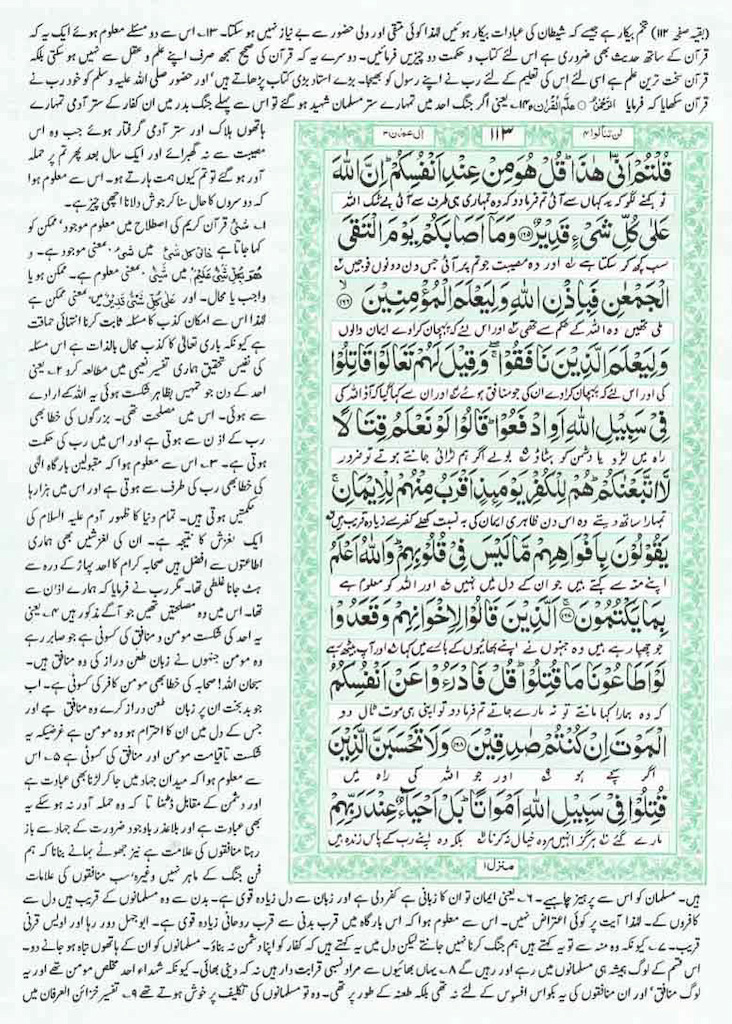 (بقیہ صفحہ ۱۱۲) تخم بیکار ہے جیسے کہ شیطان کی عبادات بیکار ہوئیں لہٰذا کوئی متقی اور ولی حضور سے بے نیاز نہیں ہو سکتا۔ ۱۳۔ اس سے دو مسئلے معلوم ہوئے ایک یہ کہ
قرآن کے ساتھ حدیث بھی ضروری ہے اس لئے کتاب و حکمت دو چیزیں فرمائیں۔ دوسرے یہ کہ قرآن کی صحیح سمجھ صرف اپنے علم و عقل سے نہیں ہو سکتی بلکہ
قرآن سخت ترین علم ہے اسی لئے اس کی تعلیم کے لئے رب نے اپنے رسول کو بھیجا۔ بڑے استاد بڑی کتاب پڑھاتے ہیں' اور حضور صلی اللہ علیہ وسلم کو خود رب نے
قرآن سکھایا کہ فرمایا اَلرَّحْمٰنُ ○ عَلَّمَ الْقُرْاٰنَ ۱۴۔ یعنی اگر جنگ احد میں تمہارے ستر مسلمان شہید ہو گئے تو اس سے پہلے جنگ بدر میں ان کفار کے ستر آدمی تمہارے
ہاتھوں ہلاک اور ستر آدمی گرفتار ہوئے جب وہ اس
مصیبت سے نہ گھبرائے اور ایک سال بعد پھر تم پر حملہ
آور ہو گئے تو تم کیوں ہمت ہارتے ہو۔ اس سے معلوم ہوا
کہ دوسروں کا حال سنا کر جوش دلانا اچھی چیز ہے۔
۱۔ شَیْءٌ قرآن کریم کی اصطلاح میں موجود' ممکن کو
کہا جاتا ہے خَالِقُ کُلِّ شَیْءٍ میں شَیْءٍ بمعنی موجود ہے۔ و
هُوَ بِكُلِّ شَيْءٍ عَلِيْمٌ میں شَیْءٍ بمعنی معلوم ہے۔ ممکن ہو یا
واجب یا محال۔ اور عَلٰی کُلِّ شَیْءٍ قَدِیْرٌ میں بمعنی ممکن ہے
لہٰذا اس سے امکان کذب کا مسئلہ ثابت کرنا انتہائی حماقت
ہے کیونکہ باری تعالیٰ کا کذب محال بالذات ہے اس مسئلہ
کی نفیس تحقیق ہماری تفسیر نعیمی میں مطالعہ کرو ۲۔ یعنی
احد کے دن جو تمہیں بظاہر شکست ہوئی یہ اللہ کے ارادے
سے ہوئی۔ اس میں مصلحت تھی۔ بزرگوں کی خطا بھی
رب کے اذن سے ہوتی ہے اور اس میں رب کی حکمت
ہوتی ہے۔ ۳۔ اس سے معلوم ہوا کہ مقبولین بارگاہ الٰہی
کی خطا بھی رب کی طرف سے ہوتی ہے اور اس میں ہزارہا
حکمتیں ہوتی ہیں۔ تمام دنیا کا ظہور آدم علیہ السلام کی
ایک لغزش کا نتیجہ ہے۔ ان کی لغزشیں بھی ہماری
اطاعتوں سے افضل ہیں صحابہ کرام کا احد پہاڑ کے درہ سے
ہٹ جانا غلطی تھا۔ مگر رب نے فرمایا کہ ہمارے اذن سے
تھا۔ اس میں وہ مصلحتیں تھیں جو آگے مذکور ہیں ۴۔ یعنی
یہ احد کی شکست مومن و منافق کی کسوٹی ہے جو صابر رہے
وہ مومن جنہوں نے زبان طعن دراز کی وہ منافق ہیں۔
سبحان اللہ! صحابہ کی خطا بھی مومن کافر کی کسوٹی ہے۔ اب
جو بدبخت ان پر زبان طعن دراز کرے وہ منافق ہے اور
جس کے دل میں ان کا احترام ہو وہ مومن ہے غرضیکہ یہ
شکست تاقیامت مومن اور منافق کی کسوٹی ہے ۵۔ اس
سے معلوم ہوا کہ میدان جہاد میں جا کر لڑنا بھی عبادت ہے
اور دشمن کے مقابل ڈٹنا تا کہ وہ حملہ آور نہ ہو سکے یہ
بھی عبادت ہے اور بلاعذر باوجود ضرورت کے جہاد سے باز
رہنا منافقوں کی علامت ہے نیز جھوٹے بہانے بنانا کہ ہم
فن جنگ کے ماہر نہیں وغیرہ' سب منافقوں کی علامات
لن تنالوا ۴
۱۱۳
اٰل عمرٰن ۳
قُلْتُمْ اَنّٰى هٰذَا ؕ قُلْ هُوَ مِنْ عِنْدِ اَنْفُسِكُمْ ؕ اِنَّ اللّٰهَ
تو کہنے لگو کہ یہ کہاں سے آئی تم فرما دو کہ وہ تمہاری ہی طرف سے آئی بے شک اللہ
عَلٰى كُلِّ شَیْءٍ قَدِیْرٌ ﴿۱۶۵﴾ وَمَاۤ اَصَابَكُمْ یَوْمَ الْتَقَى
سب کچھ کر سکتا ہے اور وہ مصیبت جو تم پر آئی جس دن دونوں فوجیں
الْجَمْعٰنِ فَبِاِذْنِ اللّٰهِ وَلِیَعْلَمَ الْمُؤْمِنِیْنَ ﴿۱۶۶﴾
ملی تھیں وہ اللہ کے حکم سے تھی اور اس لئے کہ پہچان کرا دے ایمان والوں
وَلِیَعْلَمَ الَّذِیْنَ نَافَقُوْا ۖۚ وَقِیْلَ لَهُمْ تَعَالَوْا قَاتِلُوْا
کی اور اس لئے کہ پہچان کرا دے ان کی جو منافق ہوئے اور ان سے کہا گیا کہ آؤ اللہ کی
فِیْ سَبِیْلِ اللّٰهِ اَوِ ادْفَعُوْا ؕ قَالُوْا لَوْ نَعْلَمُ قِتَالًا
راہ میں لڑو یا دشمن کو ہٹاؤ بولے اگر ہم لڑائی جانتے ہوتے تو ضرور
لَّا اتَّبَعْنٰكُمْ ؕ هُمْ لِلْكُفْرِ یَوْمَىِٕذٍ اَقْرَبُ مِنْهُمْ لِلْاِیْمَانِ ۚ
تمہارا ساتھ دیتے وہ اس دن ظاہری ایمان کی بہ نسبت کھلے کفر سے زیادہ قریب ہیں
یَقُوْلُوْنَ بِاَفْوَاهِهِمْ مَّا لَیْسَ فِیْ قُلُوْبِهِمْ ؕ وَاللّٰهُ اَعْلَمُ
اپنے منہ سے کہتے ہیں جو ان کے دل میں نہیں اور اللہ کو معلوم ہے
بِمَا یَكْتُمُوْنَ ﴿۱۶۷﴾ اَلَّذِیْنَ قَالُوْا لِاِخْوَانِهِمْ وَقَعَدُوْا
جو چھپا رہے ہیں وہ جنہوں نے اپنے بھائیوں کے بارے میں کہا اور آپ بیٹھ رہے
لَوْ اَطَاعُوْنَا مَا قُتِلُوْا ؕ قُلْ فَادْرَءُوْا عَنْ اَنْفُسِكُمُ
کہ وہ ہمارا کہا مانتے تو نہ مارے جاتے تم فرما دو تو اپنی ہی موت ٹال دو
الْمَوْتَ اِنْ كُنْتُمْ صٰدِقِیْنَ ﴿۱۶۸﴾ وَلَا تَحْسَبَنَّ الَّذِیْنَ
اگر سچے ہو اور جو اللہ کی راہ میں
قُتِلُوْا فِیْ سَبِیْلِ اللّٰهِ اَمْوَاتًا ؕ بَلْ اَحْیَآءٌ عِنْدَ رَبِّهِمْ
مارے گئے ہرگز انہیں مردہ خیال نہ کرنا بلکہ وہ اپنے رب کے پاس زندہ ہیں
منزل ۱
ہیں۔ مسلمان کو اس سے پرہیز چاہیے۔ ۶۔ یعنی ایمان تو ان کا زبانی ہے کفر دلی ہے اور زبان سے دل زیادہ قوی ہے۔ بدن سے وہ مسلمانوں کے قریب ہیں دل سے
کافروں کے۔ لہٰذا آیت پر کوئی اعتراض نہیں۔ اس سے معلوم ہوا کہ اس بارگاہ میں قرب بدنی سے قرب روحانی زیادہ قوی ہے۔ ابوجہل دور رہا اور اویس قرنی
قریب۔ ۷۔ کیونکہ وہ منہ سے تو یہ کہتے ہیں ہم جنگ کرنا نہیں جانتے لیکن دل میں یہ کہتے ہیں کہ کفار کو اپنا دشمن نہ بناؤ۔ مسلمانوں کو ان کے ہاتھوں تباہ ہو جانے دو۔
اس قسم کے لوگ ہمیشہ ہی مسلمانوں میں رہے اور رہیں گے ۸۔ یہاں بھائیوں سے مراد نسبی قرابت دار ہیں نہ کہ دینی بھائی۔ کیونکہ شہداء احد مخلص مومن تھے اور یہ
لوگ منافق' اور ان منافقوں کی یہ بکواس افسوس کے لئے نہ تھی بلکہ طعنہ کے طور پر تھی۔ وہ تو مسلمانوں کی تکلیف پر خوش ہوتے تھے ۹۔ تفسیر خزائن العرفان میں